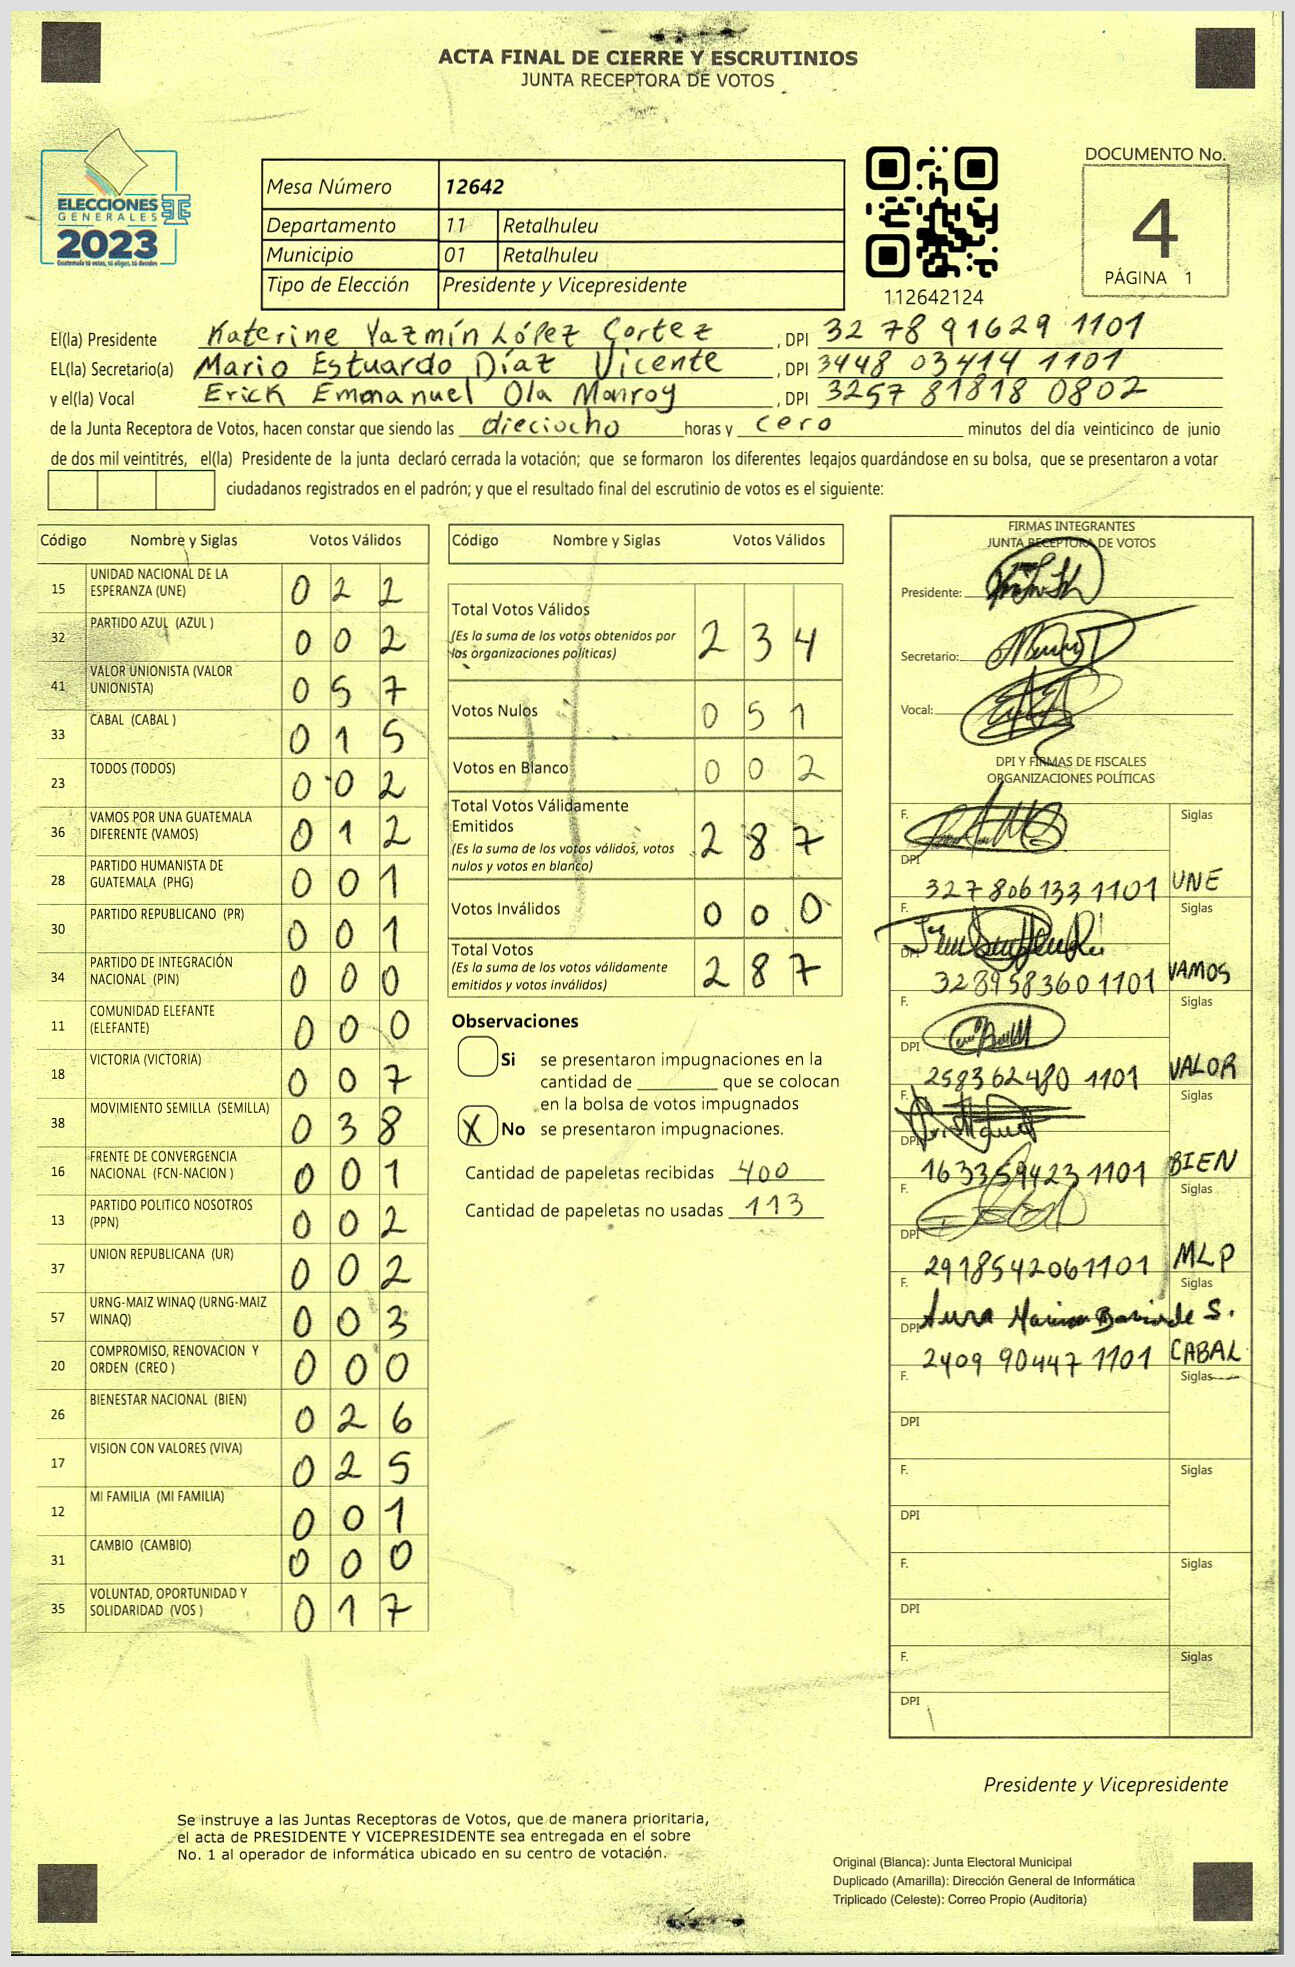 ACTA FINAL DE CIERRE Y ESCRUTINIOS
JUNTA RECEPTORA DE VOTOS
ELECCIONES
GENERALES
2023
Guatemala tú votas, tú eliges, tú decides
Mesa Número 12642
Departamento 11 Retalhuleu
Municipio 01 Retalhuleu
Tipo de Elección Presidente y Vicepresidente
112642124
DOCUMENTO No.
4
PÁGINA 1
El(la) Presidente Katerine Yazmín López Cortez , DPI 32 78 91629 1101
EL(la) Secretario(a) Mario Estuardo Díaz Vicente , DPI 3448 03414 1101
y el(la) Vocal Erick Emmanuel Ola Monroy , DPI 3257 81818 0802
de la Junta Receptora de Votos, hacen constar que siendo las dieciocho horas y cero minutos del día veinticinco de junio
de dos mil veintitrés, el(la) Presidente de la junta declaró cerrada la votación; que se formaron los diferentes legajos guardándose en su bolsa, que se presentaron a votar
ciudadanos registrados en el padrón; y que el resultado final del escrutinio de votos es el siguiente:
Código Nombre y Siglas Votos Válidos
15 UNIDAD NACIONAL DE LA ESPERANZA (UNE) 0 2 2
32 PARTIDO AZUL (AZUL ) 0 0 2
41 VALOR UNIONISTA (VALOR UNIONISTA) 0 5 7
33 CABAL (CABAL ) 0 1 5
23 TODOS (TODOS) 0 0 2
36 VAMOS POR UNA GUATEMALA DIFERENTE (VAMOS) 0 1 2
28 PARTIDO HUMANISTA DE GUATEMALA (PHG) 0 0 1
30 PARTIDO REPUBLICANO (PR) 0 0 1
34 PARTIDO DE INTEGRACIÓN NACIONAL (PIN) 0 0 0
11 COMUNIDAD ELEFANTE (ELEFANTE) 0 0 0
18 VICTORIA (VICTORIA) 0 0 7
38 MOVIMIENTO SEMILLA (SEMILLA) 0 3 8
16 FRENTE DE CONVERGENCIA NACIONAL (FCN-NACION ) 0 0 1
13 PARTIDO POLITICO NOSOTROS (PPN) 0 0 2
37 UNION REPUBLICANA (UR) 0 0 2
57 URNG-MAIZ WINAQ (URNG-MAIZ WINAQ) 0 0 3
20 COMPROMISO, RENOVACION Y ORDEN (CREO ) 0 0 0
26 BIENESTAR NACIONAL (BIEN) 0 2 6
17 VISION CON VALORES (VIVA) 0 2 5
12 MI FAMILIA (MI FAMILIA) 0 0 1
31 CAMBIO (CAMBIO) 0 0 0
35 VOLUNTAD, OPORTUNIDAD Y SOLIDARIDAD (VOS ) 0 1 7
Código Nombre y Siglas Votos Válidos
Total Votos Válidos 2 3 4
(Es la suma de los votos obtenidos por
las organizaciones políticas)
Votos Nulos 0 5 1
Votos en Blanco 0 0 2
Total Votos Válidamente
Emitidos 2 8 7
(Es la suma de los votos válidos, votos
nulos y votos en blanco)
Votos Inválidos 0 0 0
Total Votos 2 8 7
(Es la suma de los votos válidamente
emitidos y votos inválidos)
Observaciones
Si se presentaron impugnaciones en la
cantidad de ________ que se colocan
en la bolsa de votos impugnados
X No se presentaron impugnaciones.
Cantidad de papeletas recibidas 400
Cantidad de papeletas no usadas 113
FIRMAS INTEGRANTES
JUNTA RECEPTORA DE VOTOS
Presidente:
Secretario:
Vocal:
DPI Y FIRMAS DE FISCALES
ORGANIZACIONES POLÍTICAS
F. Siglas
DPI 327806133 1101 UNE
F. Siglas
DPI 328958360 1101 VAMOS
F. Siglas
DPI 258362480 1101 VALOR
F. Siglas
DPI 163359423 1101 BIEN
F. Siglas
DPI 2918542061101 MLP
F. Siglas
DPI 2409 90447 1101 CABAL
F. Siglas
DPI
F. Siglas
DPI
F. Siglas
DPI
F. Siglas
DPI
Presidente y Vicepresidente
Se instruye a las Juntas Receptoras de Votos, que de manera prioritaria,
el acta de PRESIDENTE Y VICEPRESIDENTE sea entregada en el sobre
No. 1 al operador de informática ubicado en su centro de votación.
Original (Blanca): Junta Electoral Municipal
Duplicado (Amarilla): Dirección General de Informática
Triplicado (Celeste): Correo Propio (Auditoria)